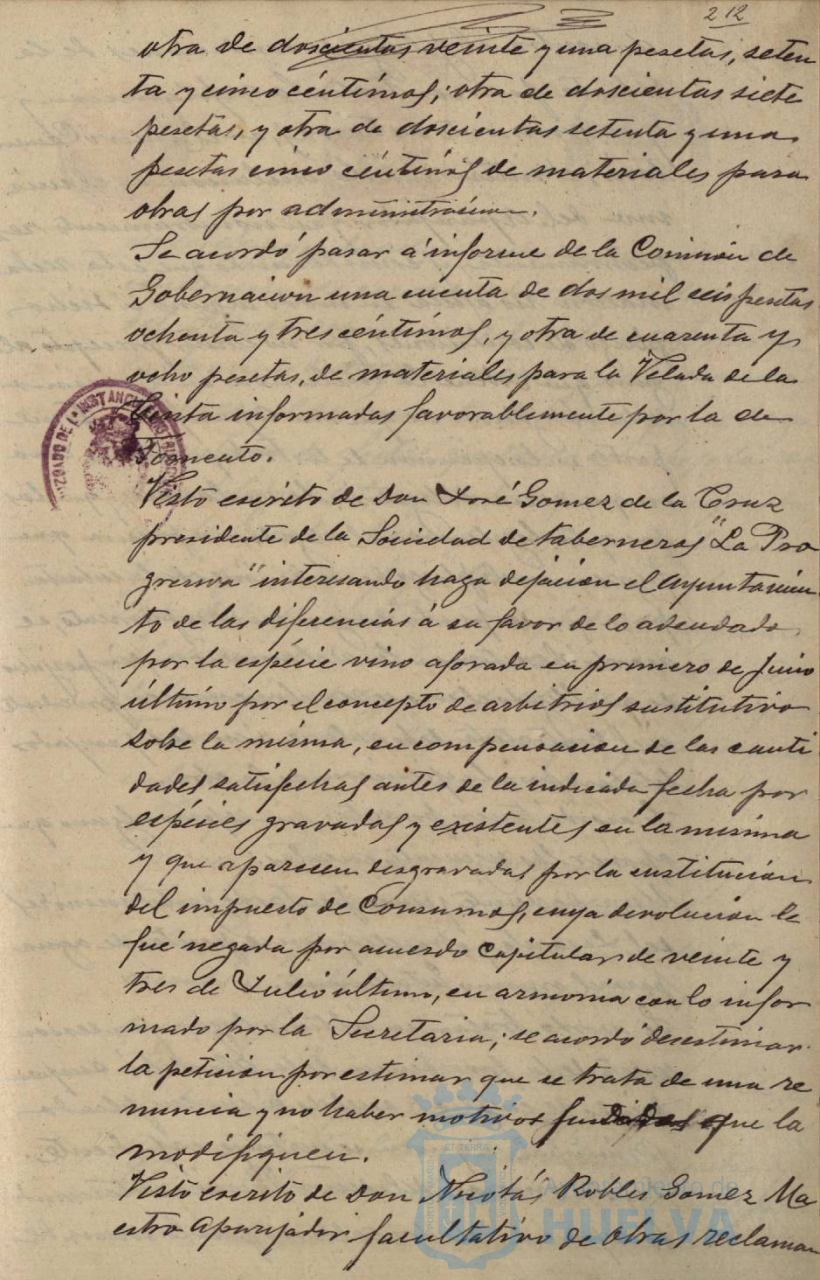 212
otra de doscientas veinte y una pesetas, seten
ta y cinco céntimos; otra de doscientas siete
pesetas, y otra de doscientas setenta y una
pesetas cinco céntimos de materiales para
obras por administracion.
Se acordó pasar á informe de la Comisión de
Gobernacion una cuenta de dos mil seis pesetas
ochenta y tres céntimos, y otra de cuarenta y
ocho pesetas, de materiales para la Velada de la
Cinta informadas favorablemente por la de
Fomento.
Visto escrito de Don José Gomez de la Cruz
presidente de la Sociedad de taberneros "La Pro
gresiva" interesando haga dejacion el Ayuntamien
to de las diferencias á su favor de lo adeudado
por la espécie vino aforada en primero de Junio
último por el concepto de arbitrios sustitutivo
sobre la misma, en compensacion de las canti
dades satisfechas antes de la indicada fecha por
espécies gravadas y existentes en la misma
y que aparecen desgravadas por la sustitución
del impuesto de Consumos, cuya devolucion le
fué negada por acuerdo Capitular de veinte y
tres de Julio último, en armonia con lo infor
mado por la Secretaria; se acordó desestimar
la petición por estimar que se trata de una re
nuncia y no haber motivos fundados que la
modifiquen.
Visto escrito de Don Nicolás Robles Gomez Ma
estro Aparejador facultativo de Obras reclaman
JUZGADO DE 1ª INSTANCIA
Ayuntamiento de
HUELVA